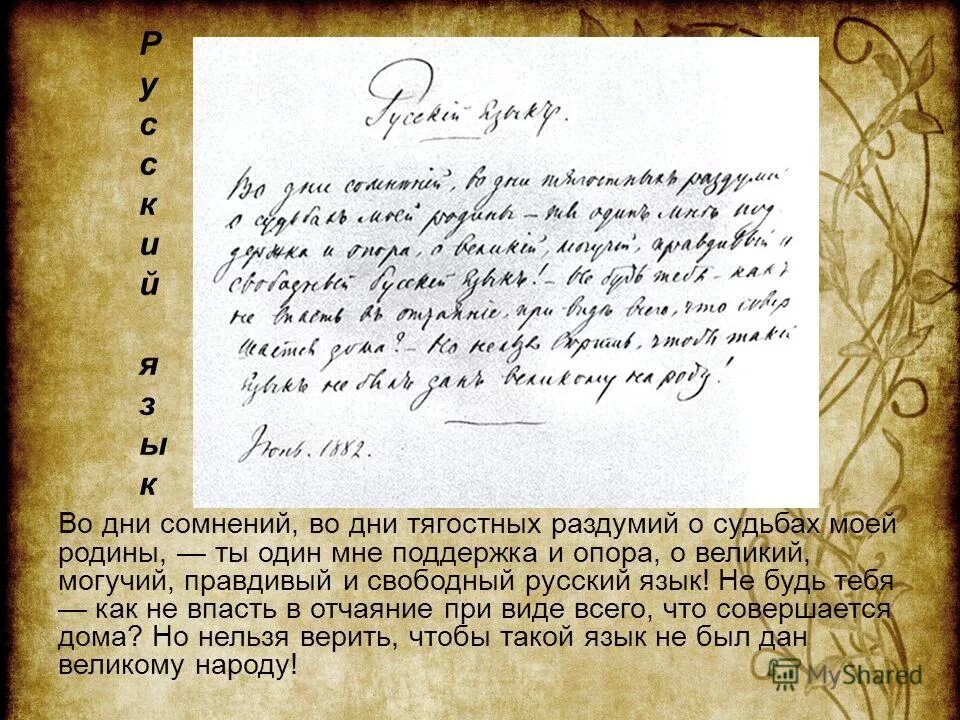 Русский
язык
Русскій языкъ.
Во дни сомнѣній, во дни тягостныхъ раздумій
о судьбахъ моей родины – ты одинъ мнѣ под
держка и опора, о великій, могучій, правдивый и
свободный русскій языкъ! – Не будь тебя – какъ
не впасть въ отчаяніе, при видѣ всего, что совер
шается дома? – Но нельзя вѣрить, чтобы такой
языкъ не былъ данъ великому народу!
Іюнь. 1882.
Во дни сомнений, во дни тягостных раздумий о судьбах моей
родины, — ты один мне поддержка и опора, о великий,
могучий, правдивый и свободный русский язык! Не будь тебя
— как не впасть в отчаяние при виде всего, что совершается
дома? Но нельзя верить, чтобы такой язык не был дан
великому народу!
MyShared